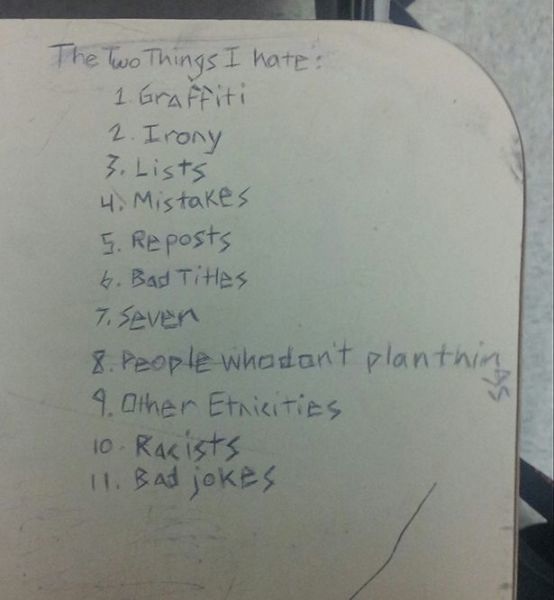 The Two Things I hate:
1. Graffiti
2. Irony
3. Lists
4. Mistakes
5. Reposts
6. Bad Titles
7. Seven
8. People who don't plan things
9. Other Etnicities
10. Racists
11. Bad jokes